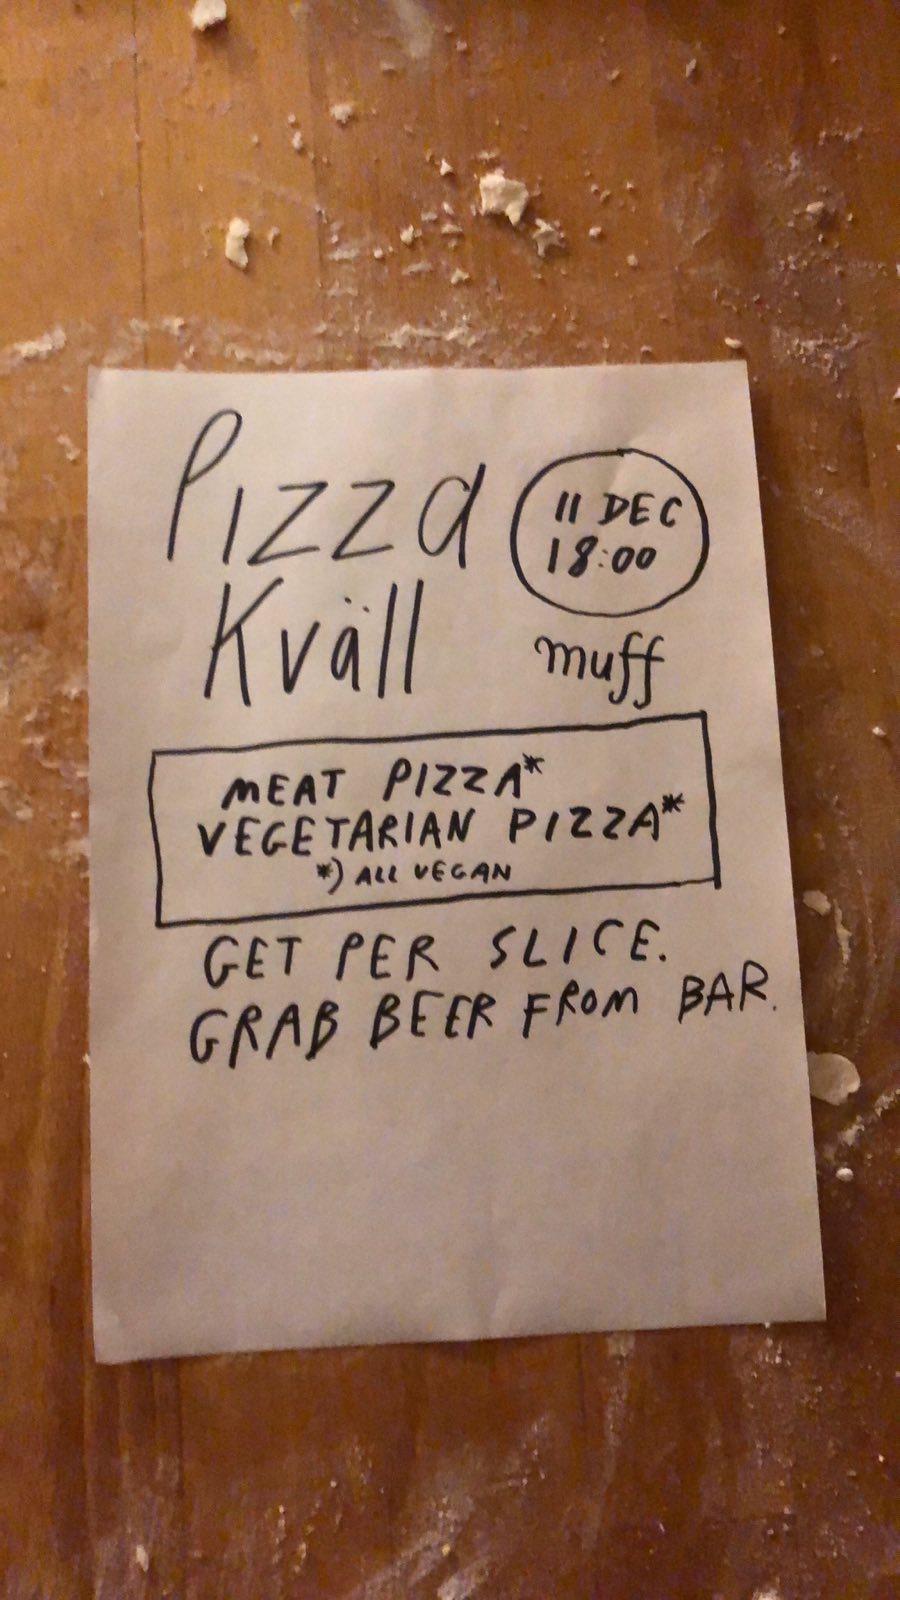 Pizza
Kväll
11 DEC
18:00
muff
MEAT PIZZA*
VEGETARIAN PIZZA*
*) ALL VEGAN
GET PER SLICE.
GRAB BEER FROM BAR.